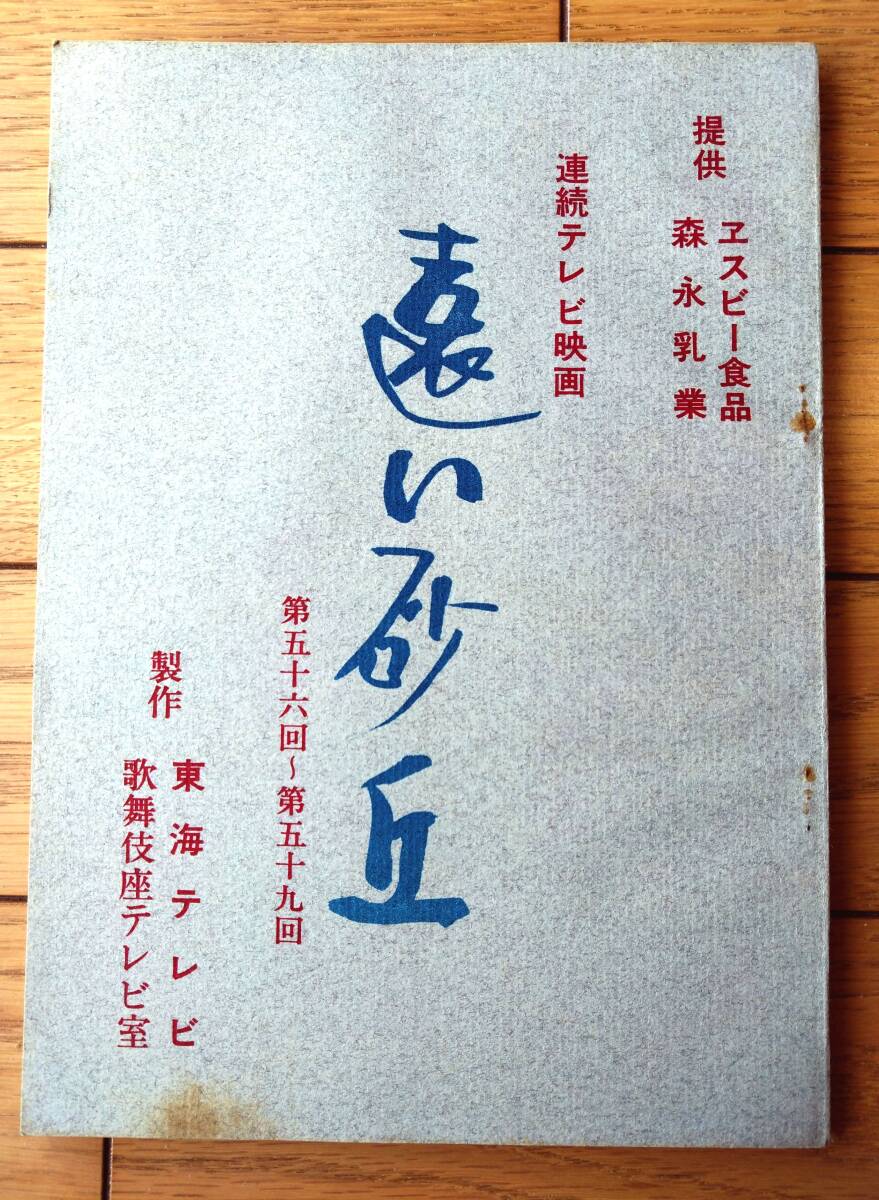 提供
ヱスビー食品
森永乳業
連続テレビ映画
遠い砂丘
第五十六回~第五十九回
製作
東海テレビ
歌舞伎座テレビ室